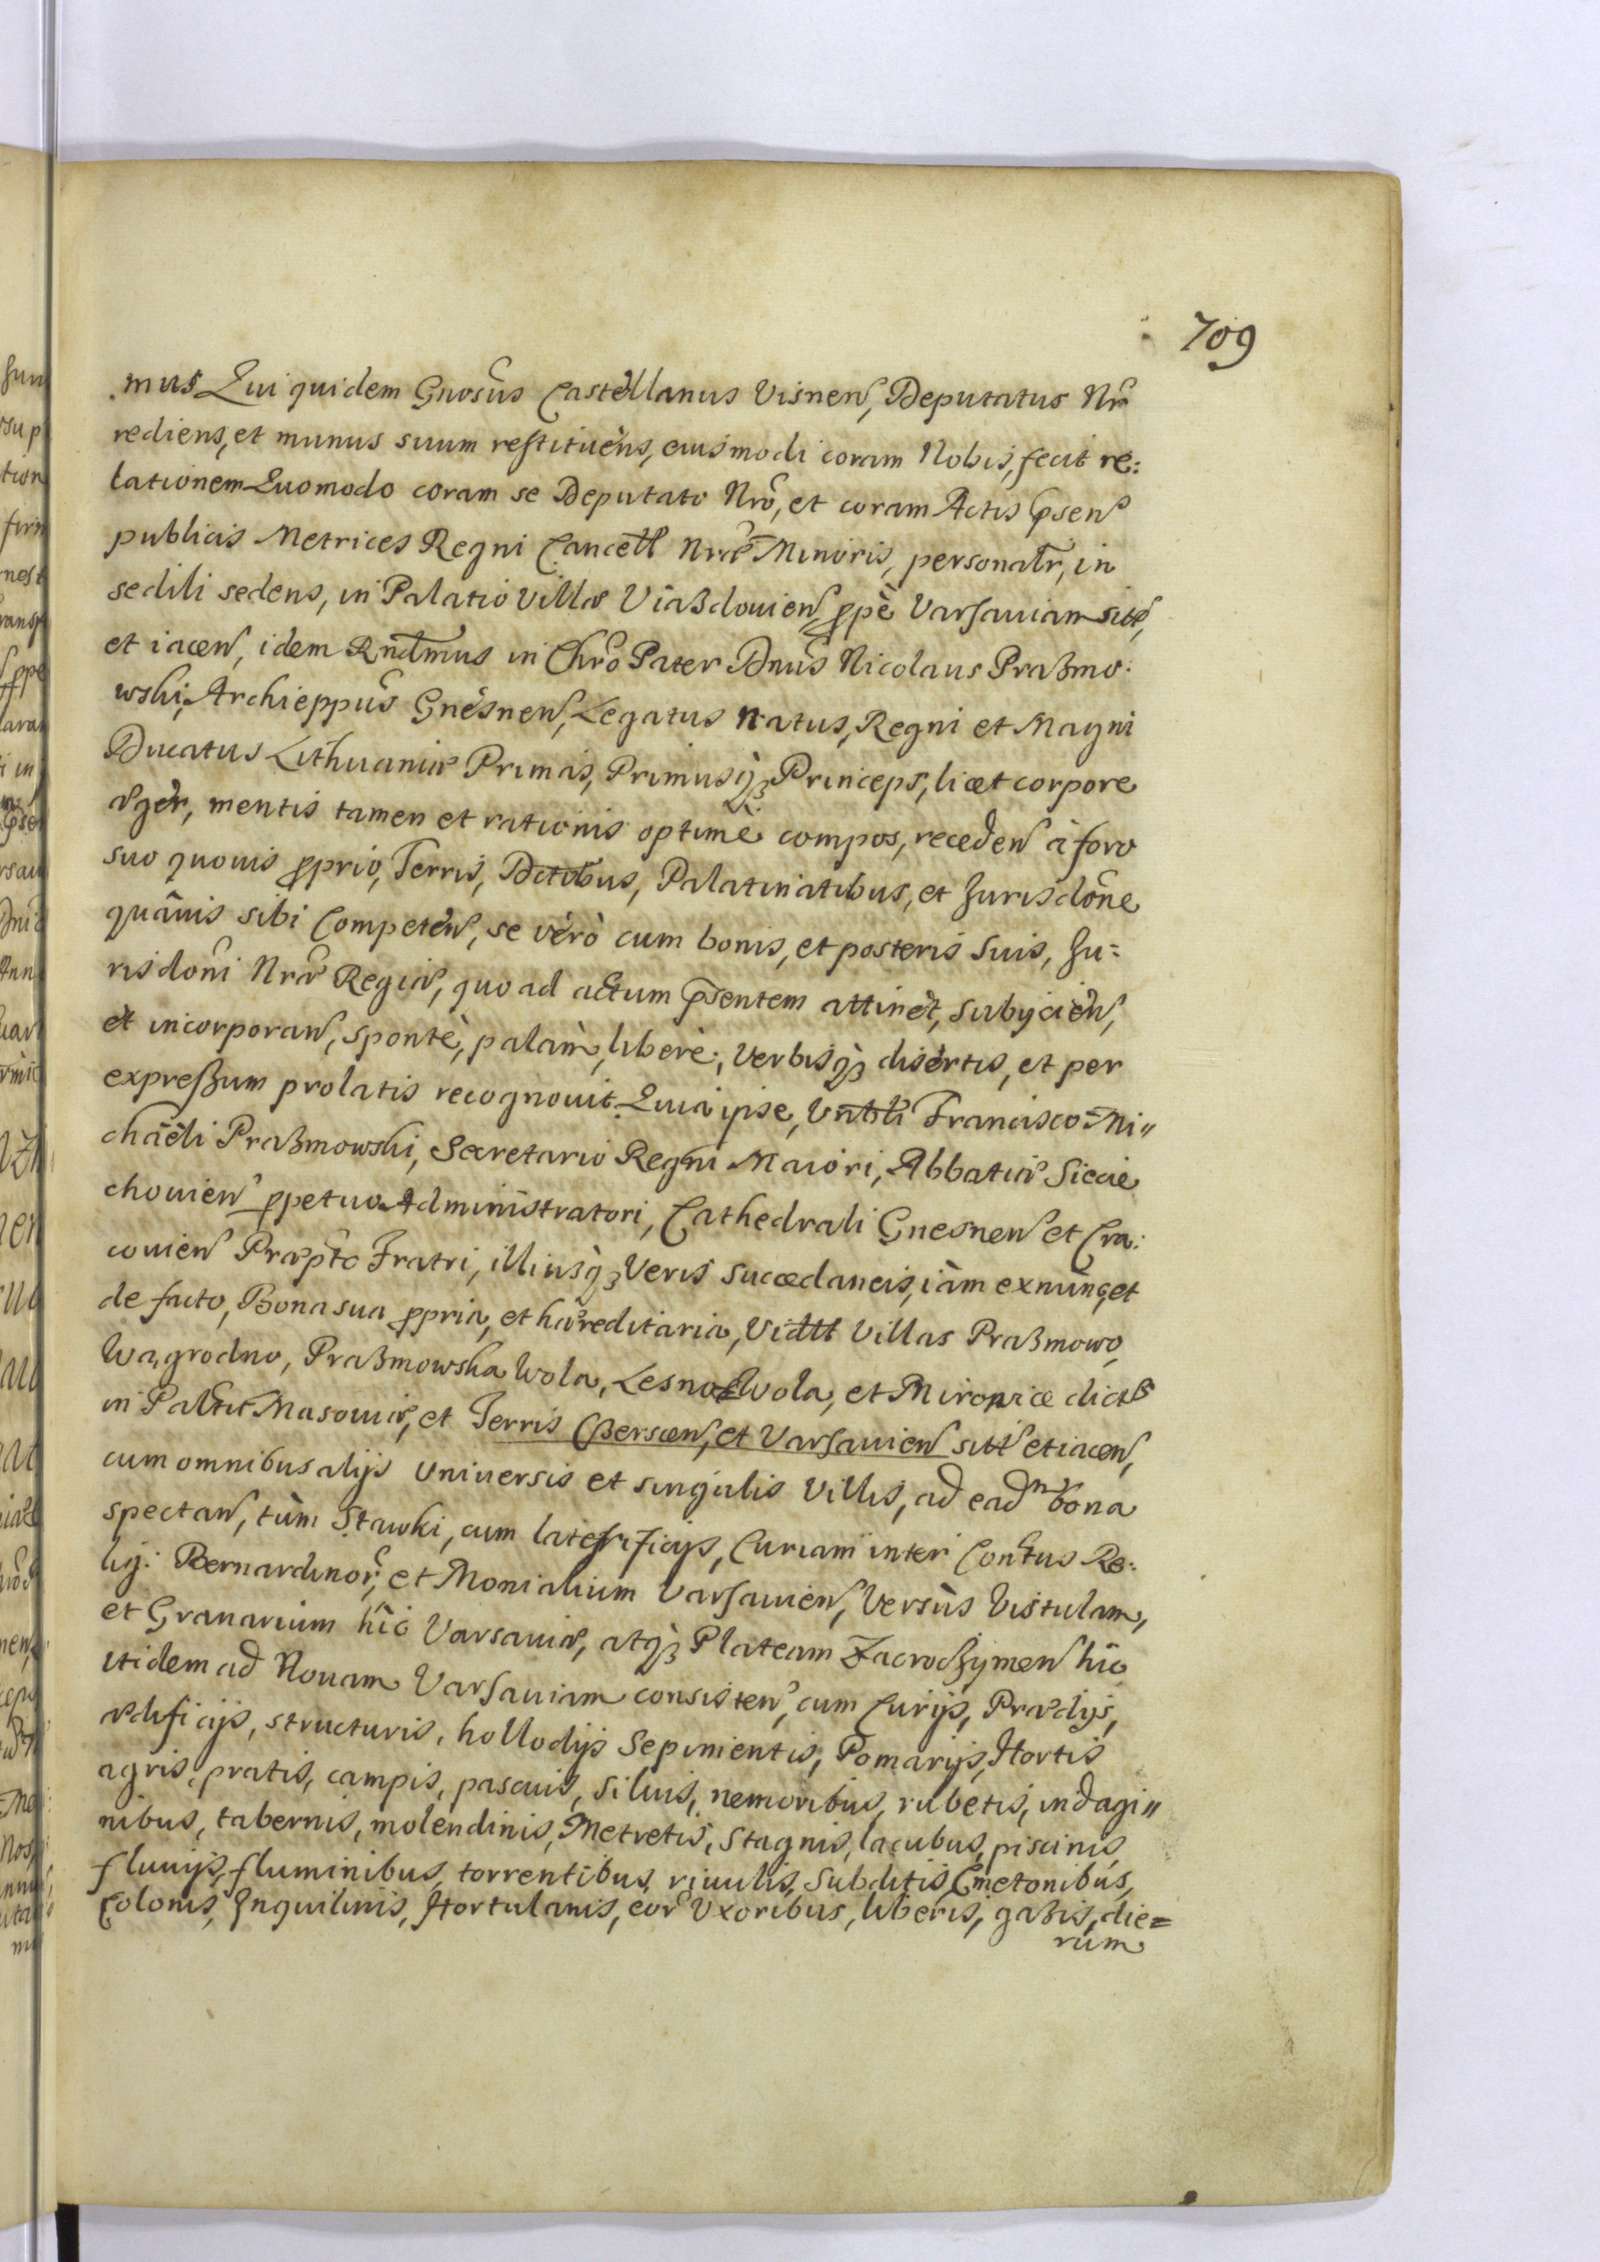 709
mus Qui quidem Gnosus Castellanus Visnen, Deputatus Nr
rediens, et munus suum restituens, eiusmodi coram Nobis, fecit re:
lationem Quomodo coram se Deputato Nro, et coram Actis psen
publicis Metrices Regni Cancell Nræ Minoris, personalr, in
sedili sedens, in Palatio Villæ Uiaʒdouien, ppè Varsauiam sitt,
et iacen, idem Rndmus in Chro Pater Dnus Nicolaus Praʒmo:
wski, Archieppus Gnesnen, Legatus natus, Regni et Magni
Ducatus Lithuaniæ Primas, Primusqʒ Princeps, licet corpore
æger, mentis tamen et rationis optimè compos, receden à foro
suo quouis pprio, Terris, Dctibus, Palatinatibus, et Jurisdone
quâuis sibi Competen, se verò cum bonis, et posteris suis, Ju=
risdoni Nræ Regiæ, quo ad actum psentem attinet, subijcien,
et incorporan, spontè, palàm, liberè, verbisqʒ disertis, et per
expreßum prolatis recognouit. Quia ipse, Urbli Francisco Mi"
chäeli Praʒmowski, Secretario Regni Maiori, Abbatiæ Siecie
chouien ppetuo Administratori, Cathedrali Gnesnen et Cra:
couien Præpto Fratri, illiusqʒ veris succedaneis, iàm exnunc, et
de facto, Bona sua ppria, et hæreditaria, Vidtt Villas Praʒmowo,
Wągrodno, Praʒmowska Wola, Lesno Wola, et Mironice dictt
in Paltt Masouiæ, et Terris Cʒerscen, et Varsauien sitt et iacen,
cum omnibus alijs uniuersis et singulis Villis, ad eadm bona
spectan, tùm Stawki, cum laterificijs, Curiam inter Contus Re:
lig: Bernardinor, et Monialium Varsauien, versùs Vistulam,
et Granarium hîc Varsauiæ, atqʒ Plateam Zacrocʒymen hîc
itidem ad Nouam Varsauiam consisten, cum Curijs, Prædijs,
ædificijs, structuris, hollodijs Sepimentis, Pomarijs, Hortis
agris, pratis, campis, pascuis, siluis, nemoribus, rubetis, indagi"
nibus, tabernis, molendinis, Metretis, stagnis, lacubus, piscinis,
fluuijs, fluminibus, torrentibus, riuulis, Subditis, Cmetonibus,
Colonis, Inquilinis, Hortulanis, eor Uxoribus, liberis, gaʒis, die=
rum